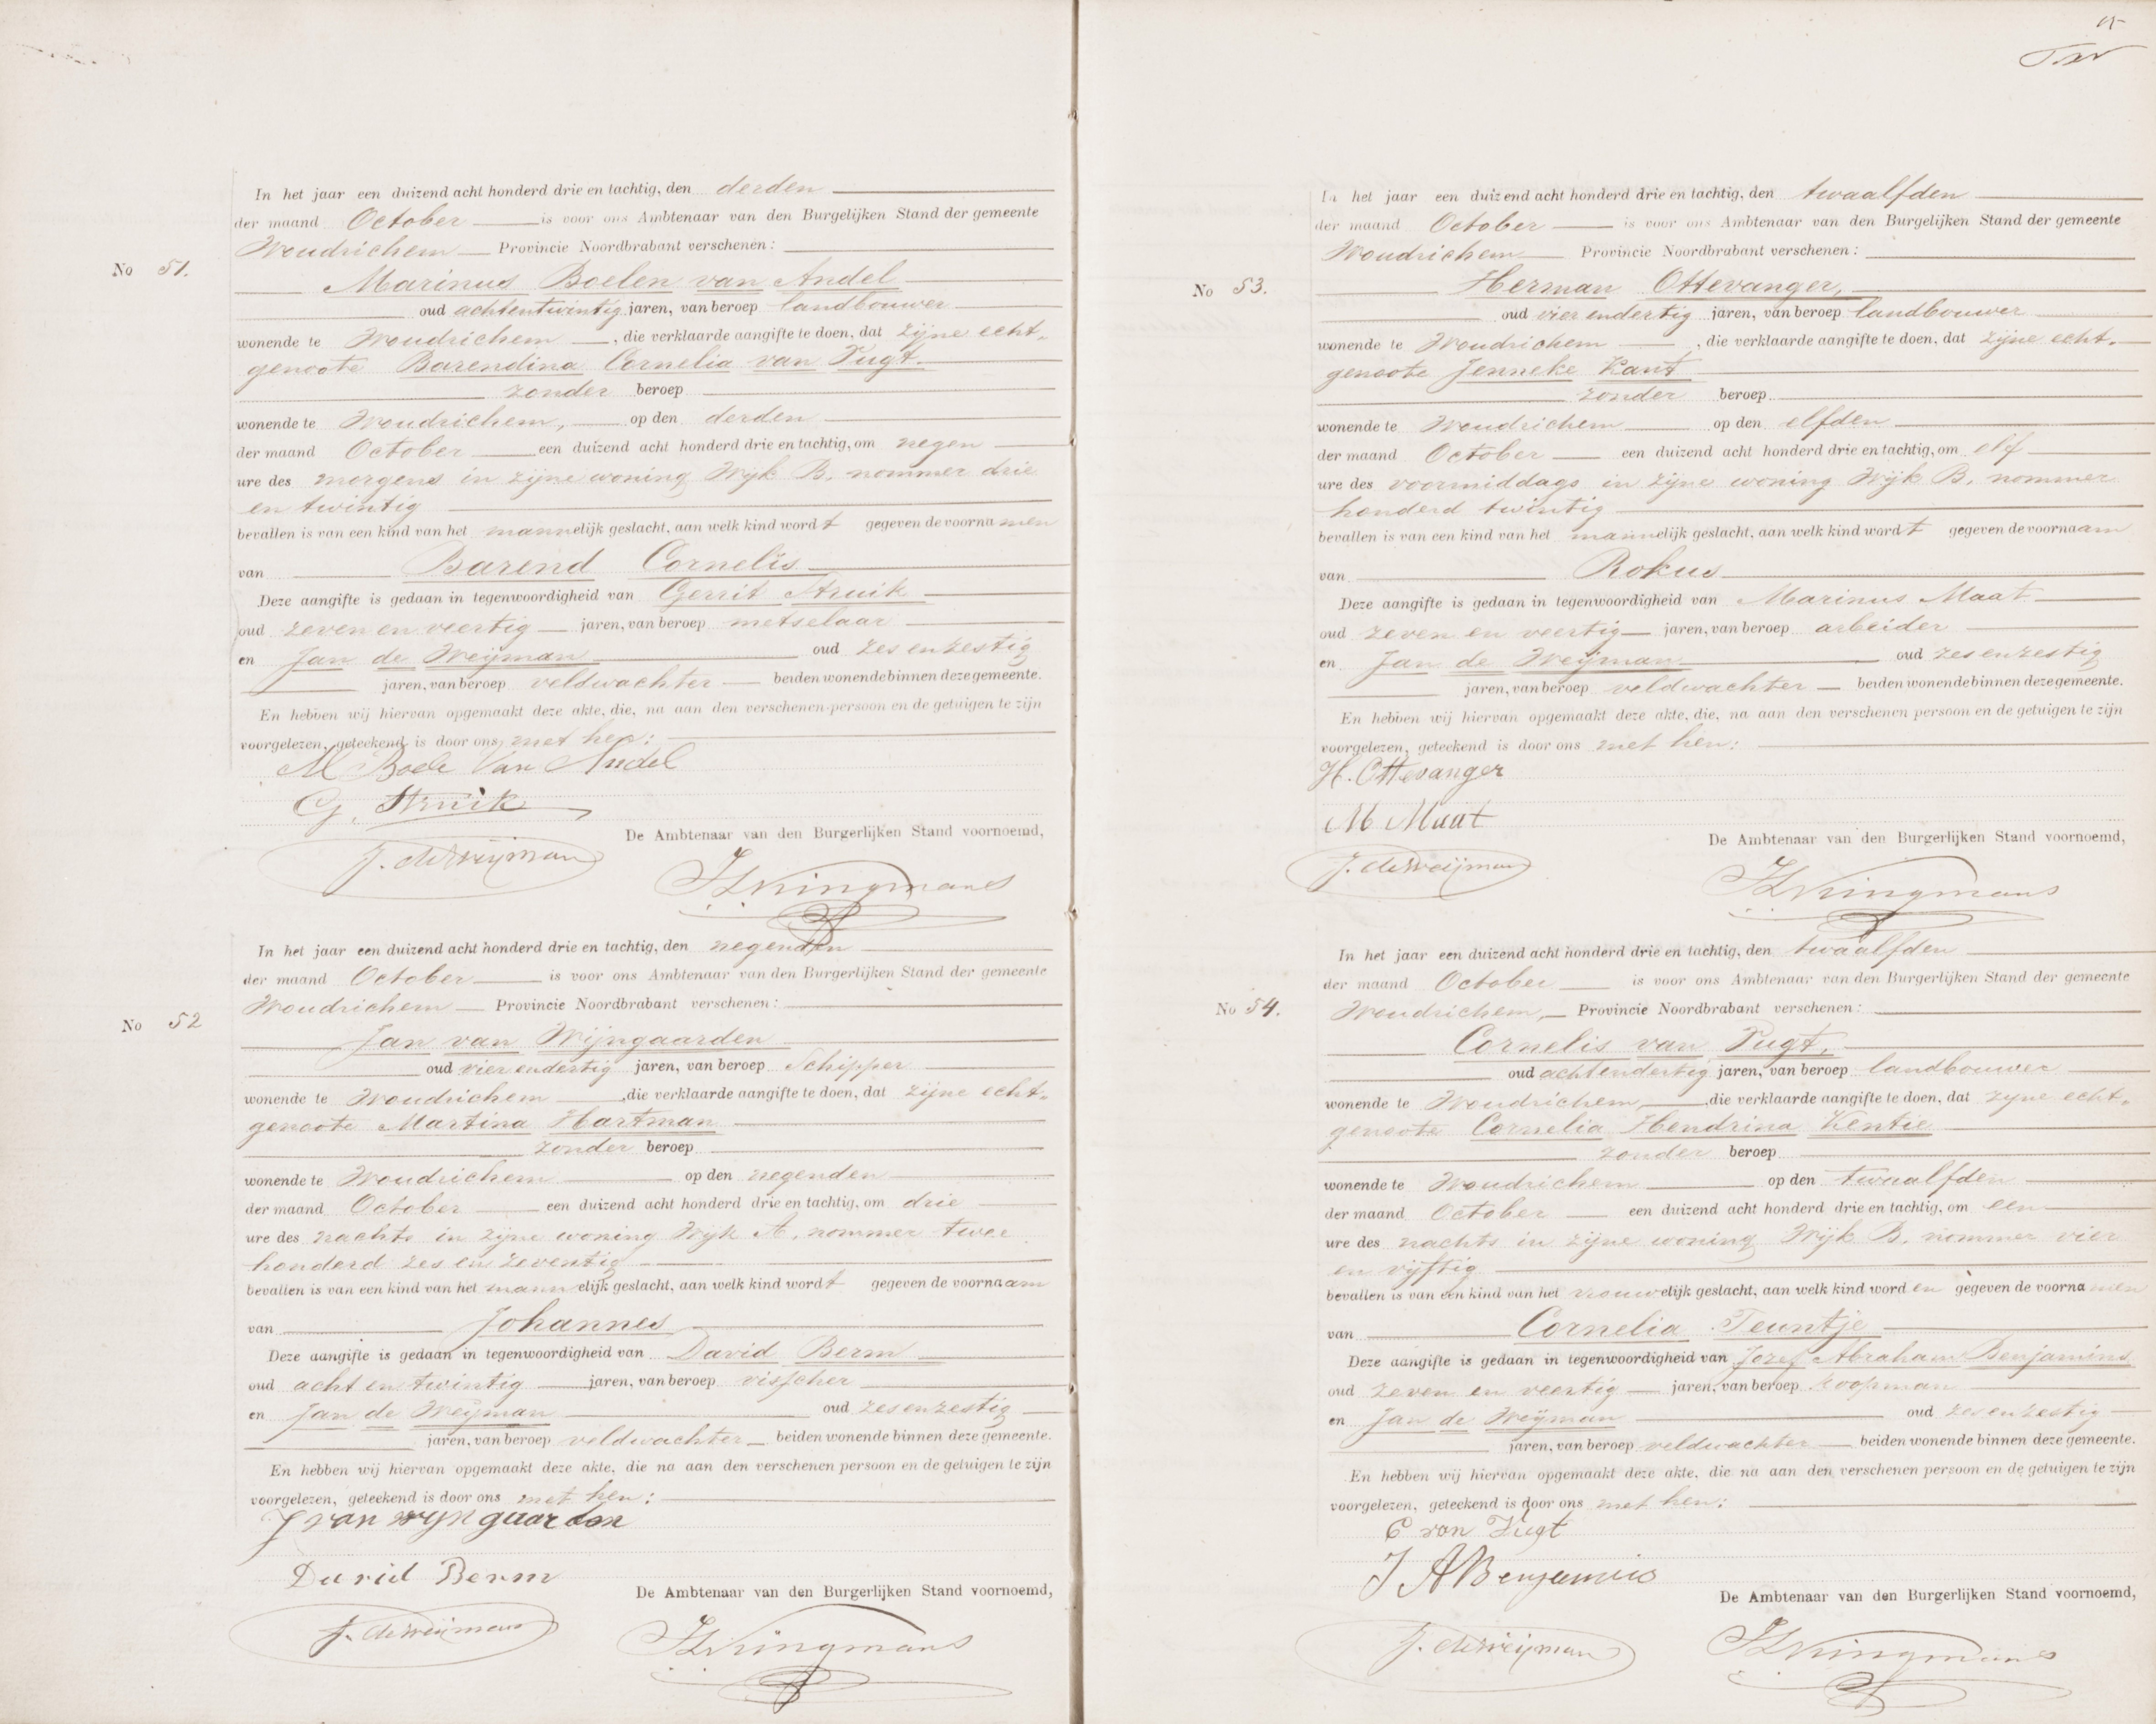 No 51.
In het jaar een duizend acht honderd drie en tachtig, den derden
der maand October is voor ons Ambtenaar van den Burgelijken Stand der gemeente
Woudrichem Provincie Noordbrabant verschenen:
Marinus Boelen van Andel
oud achtentwintig jaren, van beroep landbouwer
wonende te Woudrichem, die verklaarde aangifte te doen, dat zijne echt-
genoote Barendina Cornelia van Vugt.
zonder beroep
wonende te Woudrichem, op den derden
der maand October een duizend acht honderd drie en tachtig, om negen
ure des morgens in zijne woning Wijk B, nommer drie
en twintig
bevallen is van een kind van het mannelijk geslacht, aan welk kind wordt gegeven de voornamen
van Barend Cornelis
Deze aangifte is gedaan in tegenwoordigheid van Gerrit Struik
oud zeven en veertig jaren, van beroep metselaar
en Jan de Weijman oud zesenzestig
jaren, van beroep veldwachter beiden wonende binnen deze gemeente.
En hebben wij hiervan opgemaakt deze akte, die, na aan den verschenen persoon en de getuigen te zijn
voorgelezen, geteekend is door ons met hen:
M Boele Van Andel
G. Struik
De Ambtenaar van den Burgerlijken Stand voornoemd,
J. de Weijman
No 52
In het jaar een duizend acht honderd drie en tachtig, den negenden
der maand October is voor ons Ambtenaar van den Burgerlijken Stand der gemeente
Woudrichem Provincie Noordbrabant verschenen:
Jan van Wijngaarden
oud vier endertig jaren, van beroep Schipper
wonende te Woudrichem, die verklaarde aangifte te doen, dat zijne echt-
genoote Martina Hartman
zonder beroep
wonende te Woudrichem op den negenden
der maand October een duizend acht honderd drie en tachtig, om drie
ure des nachts in zijne woning Wijk A, nommer twee
honderd zes en zeventig
bevallen is van een kind van het mannelijk geslacht, aan welk kind wordt gegeven de voornaam
van Johannes
Deze aangifte is gedaan in tegenwoordigheid van David Berm
oud acht en twintig jaren, van beroep visscher
en Jan de Weijman oud zesenzestig
jaren, van beroep veldwachter beiden wonende binnen deze gemeente.
En hebben wij hiervan opgemaakt deze akte, die na aan den verschenen persoon en de getuigen te zijn
voorgelezen, geteekend is door ons met hen:
J van wyngaarden
David Berm
De Ambtenaar van den Burgerlijken Stand voornoemd,
J. de Weijman
No 53.
In het jaar een duizend acht honderd drie en tachtig, den twaalfden
der maand October is voor ons Ambtenaar van den Burgelijken Stand der gemeente
Woudrichem Provincie Noordbrabant verschenen:
Herman Ottevanger,
oud vier endertig jaren, van beroep landbouwer
wonende te Woudrichem, die verklaarde aangifte te doen, dat zijne echt-
genoote Jenneke Kant
zonder beroep
wonende te Woudrichem op den elfden
der maand October een duizend acht honderd drie en tachtig, om elf
ure des voormiddags in zijne woning Wijk B, nommer
honderd twintig
bevallen is van een kind van het mannelijk geslacht, aan welk kind wordt gegeven de voornaam
van Rokus
Deze aangifte is gedaan in tegenwoordigheid van Marinus Maat
oud zeven en veertig jaren, van beroep arbeider
en Jan de Weijman oud zesenzestig
jaren, van beroep veldwachter beiden wonende binnen deze gemeente.
En hebben wij hiervan opgemaakt deze akte, die, na aan den verschenen persoon en de getuigen te zijn
voorgelezen, geteekend is door ons met hen:
H. Ottevanger
M Maat
De Ambtenaar van den Burgerlijken Stand voornoemd,
J. de Weijman
No 54.
In het jaar een duizend acht honderd drie en tachtig, den twaalfden
der maand October is voor ons Ambtenaar van den Burgerlijken Stand der gemeente
Woudrichem, Provincie Noordbrabant verschenen:
Cornelis van Vugt,
oud achtendertig jaren, van beroep landbouwer
wonende te Woudrichem, die verklaarde aangifte te doen, dat zijne echt-
genoote Cornelia Hendrina Kentie
zonder beroep
wonende te Woudrichem op den twaalfden
der maand October een duizend acht honderd drie en tachtig, om een
ure des nachts in zijne woning Wijk B, nommer vier
en vijftig
bevallen is van een kind van het vrouwelijk geslacht, aan welk kind worden gegeven de voornamen
van Cornelia Teuntje
Deze aangifte is gedaan in tegenwoordigheid van Jozef Abraham Benjamins
oud zeven en veertig jaren, van beroep koopman
en Jan de Weijman oud zesenzestig
jaren, van beroep veldwachter beiden wonende binnen deze gemeente.
En hebben wij hiervan opgemaakt deze akte, die na aan den verschenen persoon en de getuigen te zijn
voorgelezen, geteekend is door ons met hen:
C van Vugt
J A Benjamins
De Ambtenaar van den Burgerlijken Stand voornoemd,
J. de Weijman